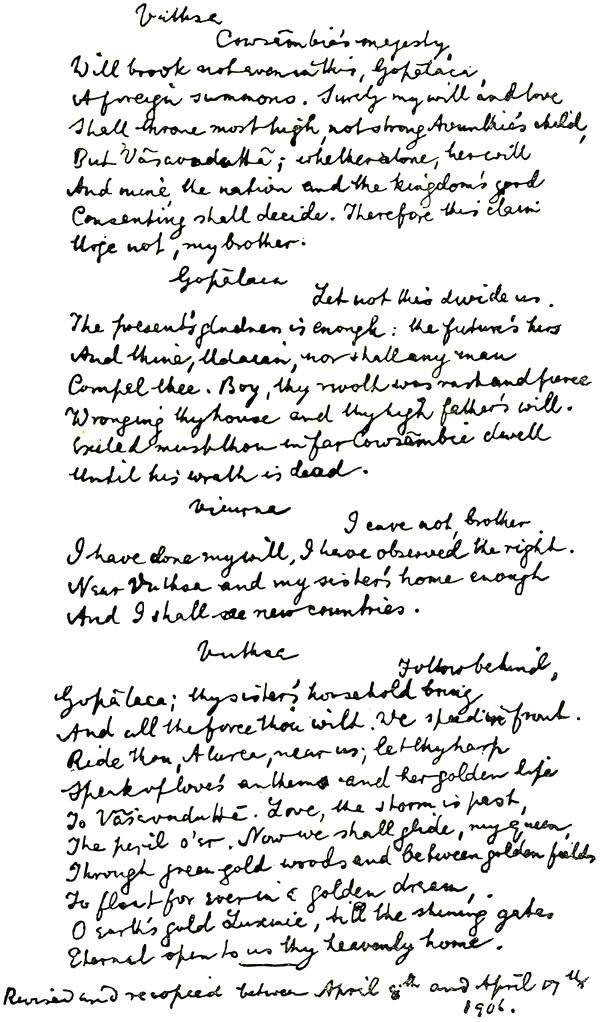 Vuthsa
Cowsāmbie's majesty,
Will brook not even in this, Gopālaca,
A foreign summons. Surely my will and love
Shall throne most high, not strong Avunthie's child,
But Vāsavaduttā; whether alone, her will
And mine the nation and the kingdom's good
Consenting shall decide. Therefore this claim
Urge not, my brother.
Gopālaca
Let not this divide us.
The present's gladness is enough: the future's hers
And thine, Udaian, nor shall any man
Compel thee. Boy, thy revolt was rash and fierce
Wronging thy house and thy high father's will.
Exiled must thou in far Cowsāmbie dwell
Until his wrath is dead.
Vicurna
I care not, brother.
I have done my will, I have observed the right.
Near Vuthsa and my sister's home enough
And I shall see new countries.
Vuthsa
Follow behind,
Gopālaca; thy sister's household bring
And all the force thou wilt. We speed in front.
Ride thou, Alurca, near us; let thy harp
Speak of love's anthems and her golden life
To Vāsavaduttā. Love, the storm is past,
The peril o'er. Now we shall glide, my queen,
Through green gold woods and between golden fields
To float for ever in a golden dream,
O earth's gold Luxmie, till the shining gates
Eternal open to us thy heavenly home.
Revised and recopied between April 8th and April 17th
1906.